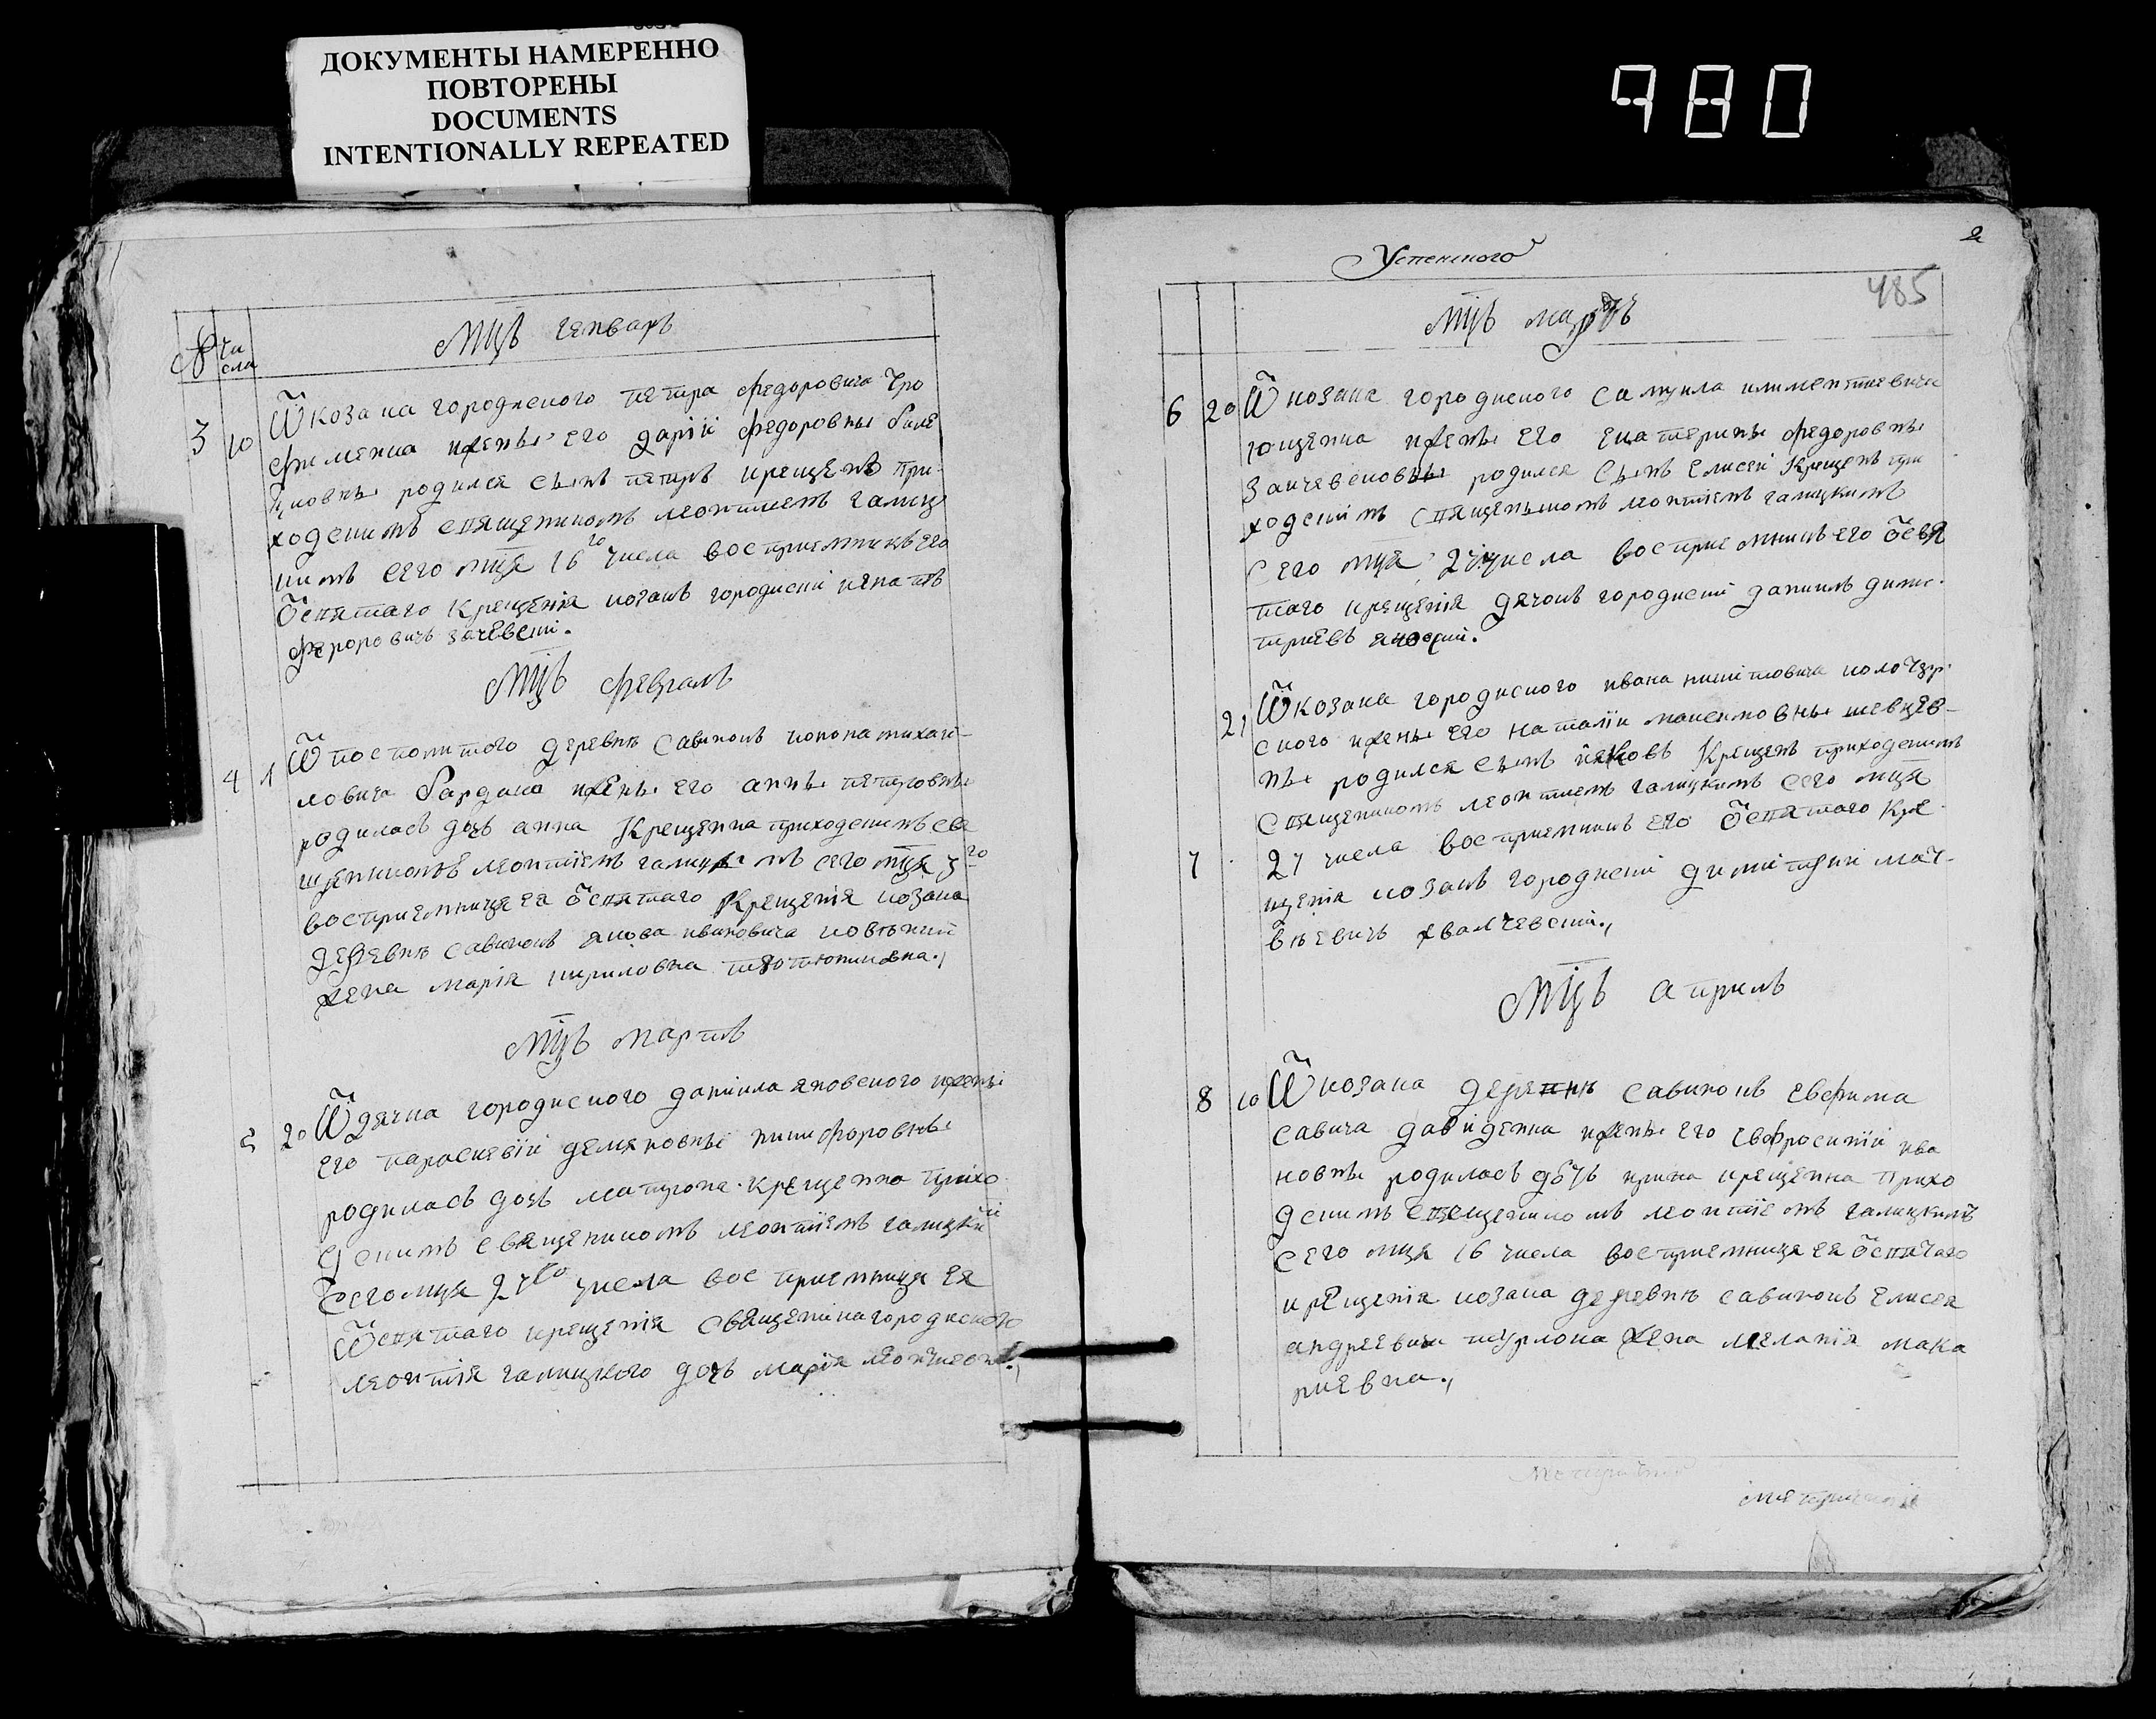 ДОКУМЕНТЫ НАМЕРЕННО
ПОВТОРЕНЫ
DOCUMENTS
INTENTIONALLY REPEATED
980
№ Чи
сла
Мцъ генваръ
3 10 Ѿ козака городиского петра федоровича Тро
фименка жены его дарїи федоровны
родился сынъ петръ крещенъ при
ходскимъ священикомъ леонтиемъ галиц
кимъ сего мця 16го числа восприемникъ его
ѿ святаго крещенїя козакъ городискій игнатъ
федоровичъ зачевскій.
Мцъ февраль
4 1 Ѿ посполитого деревнѣ савинокъ конона михай-
ловича бардака жены его анны петровны
родиласъ дочь анна крещенна приходскимъ свя
щенникомъ леонтіемъ галицкимъ сего мця 3го
восприемница ея ѿ святаго крещенїя козака
деревнѣ савинокъ якова ивановича
жена марїя кириловна
Мцъ мартъ
5 20 Ѿ дячка городиского данїила яновского жены
его параскевїи демяновны никифоровны
родиласъ дочь матрона крещенна прихо
дскимъ священикомъ леонтїемъ галицким
сего мця 21го числа восприемница ея
ѿ святаго крещенїя священика городиского
леонтїя галицкого дочь марїя леонтиевна.,
Успенского 2
485
Мцъ мартъ
6 20 Ѿ козака городиского самуила климентиевича
ющенка жены его екатерины федоровны
зачевсковны родился сынъ елисей крещенъ при
ходскїмъ священыкомъ леонтїемъ галицкимъ
сего мця 21 числа восприемникъ его ѿ свя
таго крещенїя дячокъ городискїй данїилъ дими
триевъ яновскій.
21 Ѿ козака городиского ивана никитовича
ского жены его наталїи максимовны шевцев-
ны родился сынъ іяковъ крещенъ приходскимъ
священикомъ леонтиемъ галицкимъ сего мця
7 27 числа восприемникъ его ѿ святаго кре
щенїя козакъ городнскїй димїтрїй мат-
вѣевичъ хвалчевскїй.,
Мцъ априлъ
8 10 Ѿ козака деревнѣ савинокъ евфима
савича давиденка жены его евфросинїи ива
новны родиласъ дочь ирина крещенна прихо
дскимъ священикомъ леонтїемъ галицкимъ
сего мця 16 числа восприемница ея ѿ святаго
крещенїя козака деревнѣ савинокъ елисея
андреевича жена меланїя мака
риевна.,